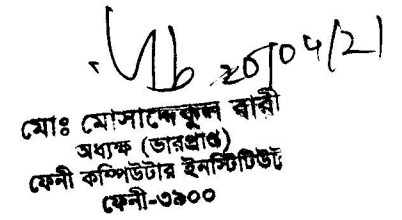 মোঃ মোসাদ্দেকুল বারী
অধ্যক্ষ (ভারপ্রাপ্ত)
ফেনী কম্পিউটার ইনস্টিটিউট
ফেনী-৩৯০০